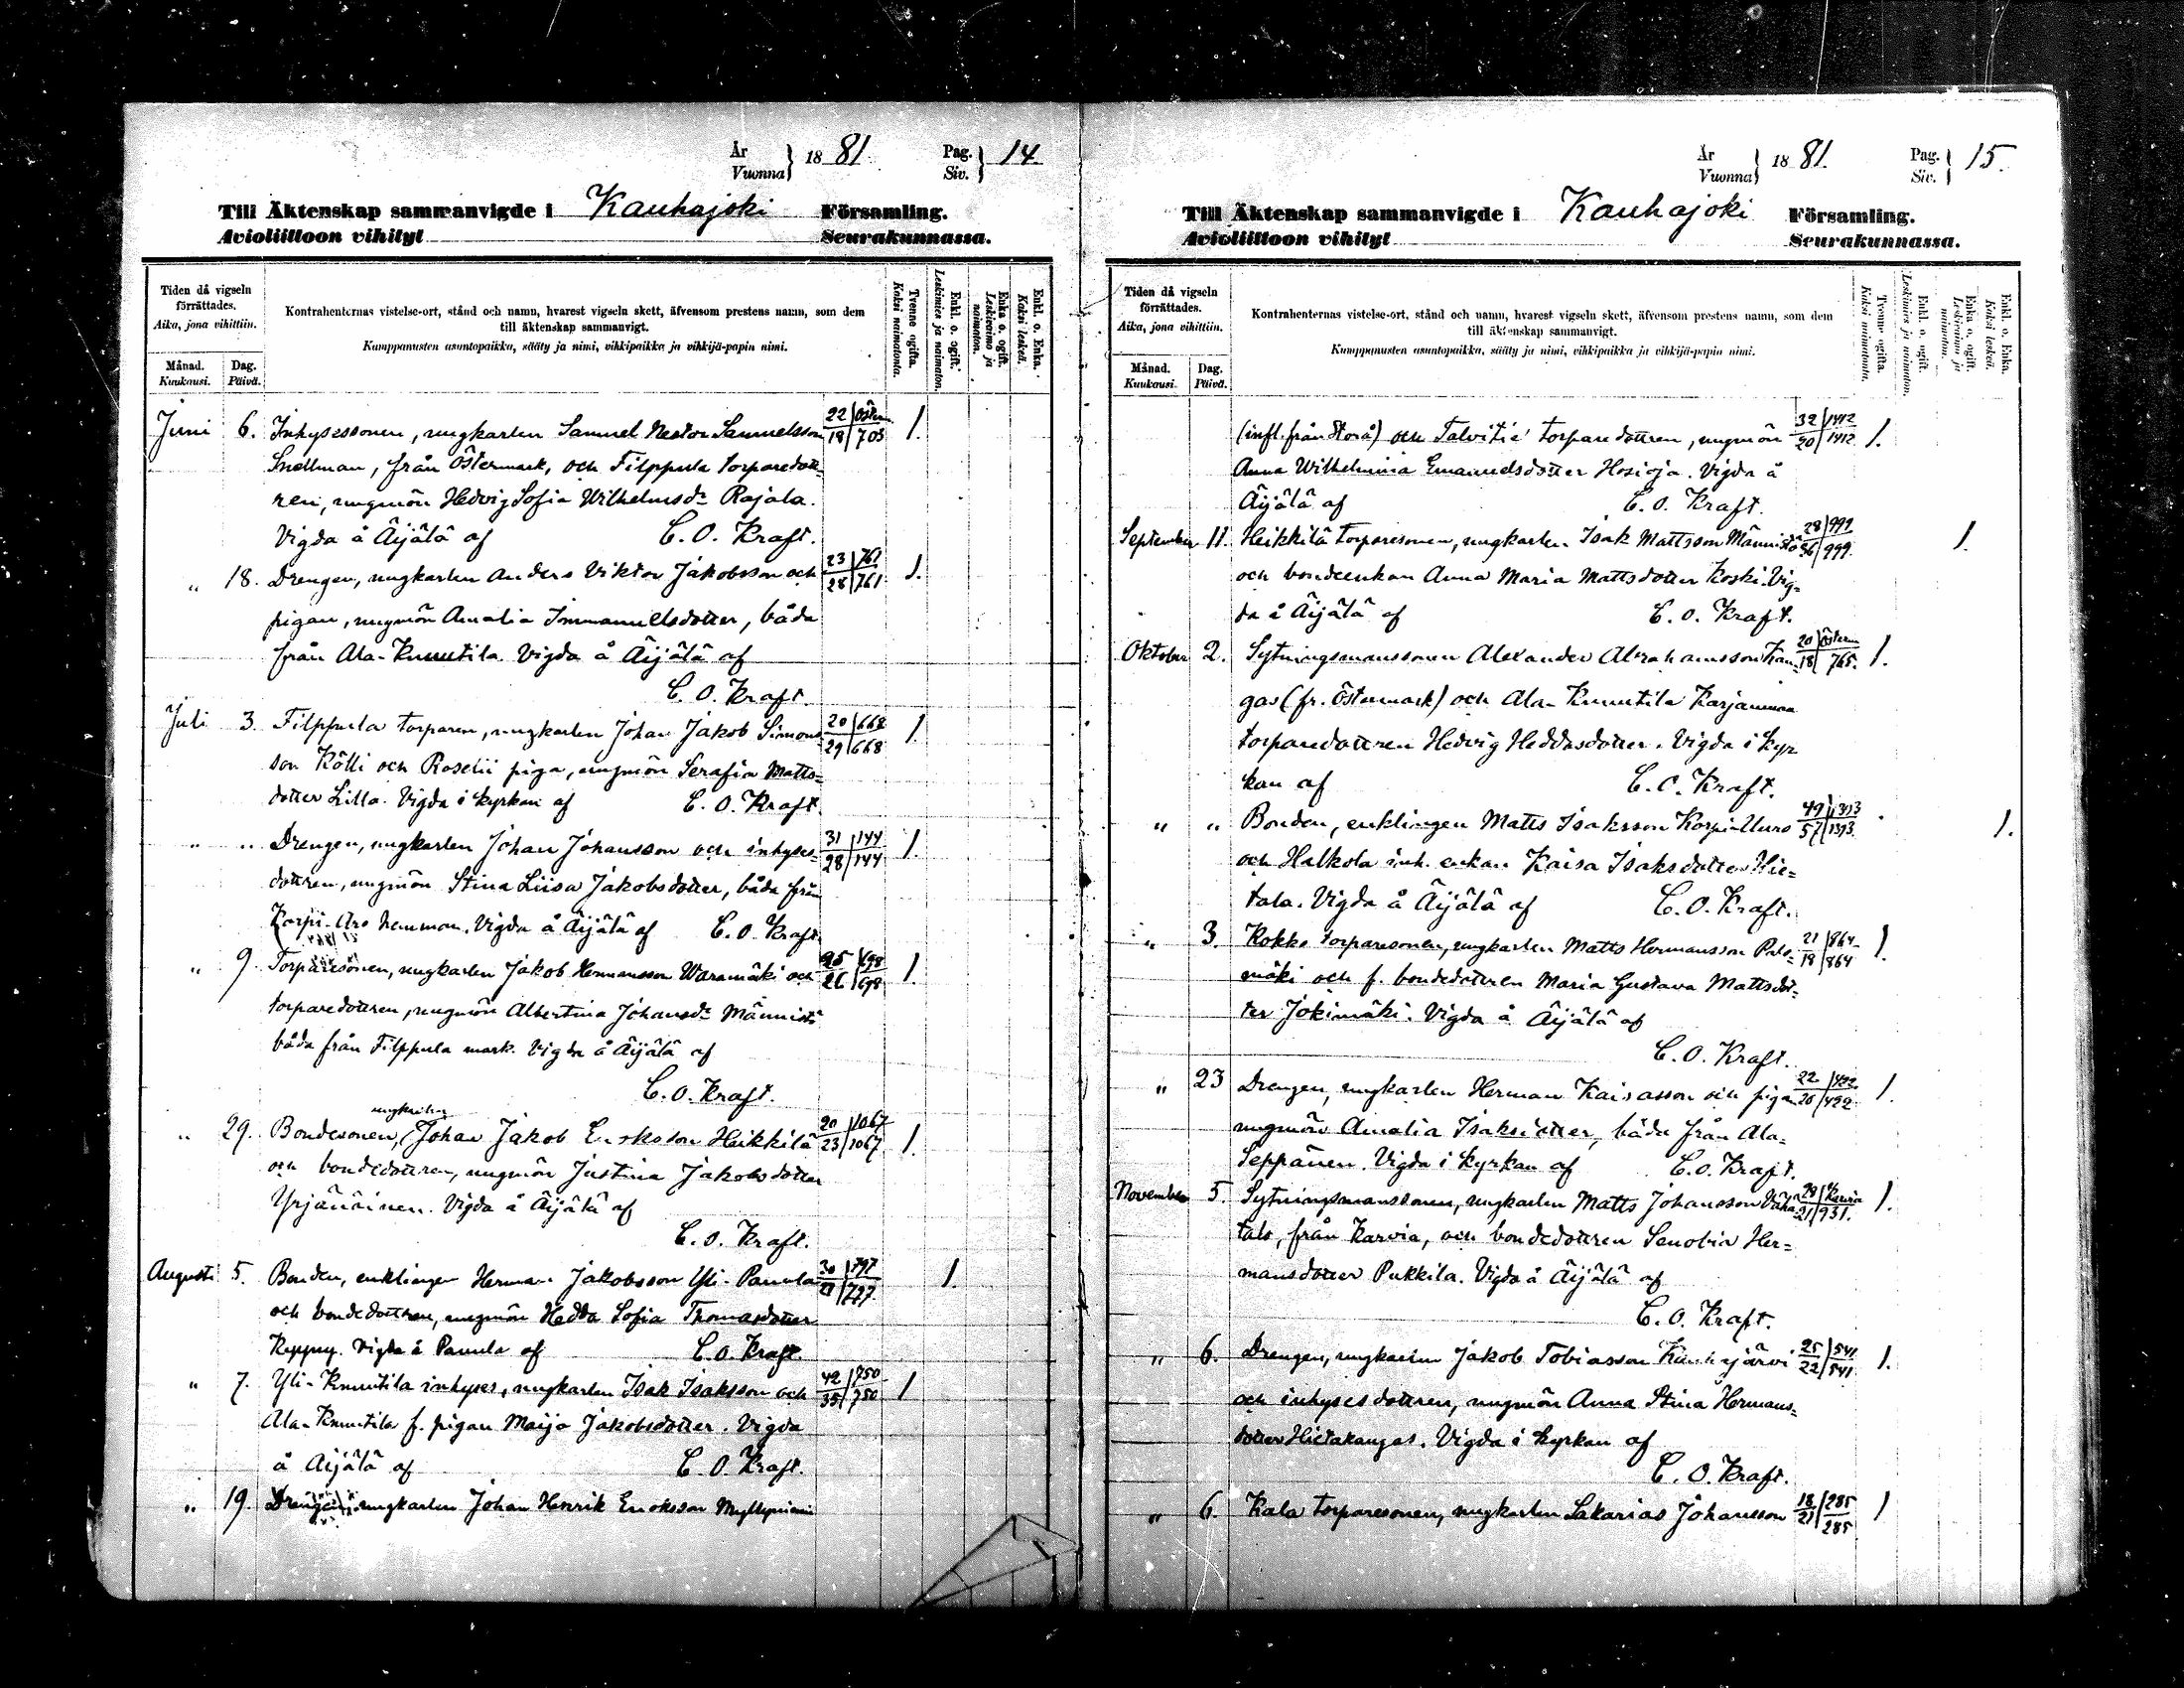 År
Vuonna } 18 81. Pag.
Siv. } 14
Till Äktenskap sammanvigde i Kauhajoki Församling.
Avioliittoon vihityt Seurakunnassa.
Tiden då vigseln
förrättades.
Aika, jona vihittiin.
Månad.
Kuukausi.
Dag.
Päivä.
Kontrahenternas vistelse-ort, stånd och namn, hvarest vigseln skett, äfvensom prestens namn, som dem
till äktenskap sammanvigt.
Kumppanusten asuntopaikka, sääty ja nimi, vihkipaikka ja vihkijä-papin nimi.
Tvenne ogifta.
Kaksi naimatonta.
Enkl. o. ogift.
Leskimies ja naimaton.
Enka o. ogift.
Leskivaimo ja
naimaton.
Enkl. o. Enka.
Kaksi leskeä.
Juni 6. Inhysessonen, ungkarlen Samuel Nestor Samuelsson 22/19 Österm/703 1.
Snellman, från Östermark, och Filppula torparedott-
ren, ungmön Hedvig Sofia Wilhelmsdr Rajala.
Vigda å Äijälä af C. O. Kraft.
" 18. Drengen, ungkarlen Anders Viktor Jakobsson och 23/28 761/761 1.
pigan, ungmön Amalia Immanuelsdotter, båda
från Ala-Knuutila. Vigda å Äijälä af
C. O. Kraft.
Juli 3. Filppula torparen, ungkarlen Johan Jakob Simons- 20/29 668/668 1.
son Kölli och Roselii piga, ungmön Serafia Matts-
dotter Lilla. Vigda i kyrkan af C. O. Kraft.
" " Drengen, ungkarlen Johan Johansson och inhyses- 31/28 144/144 1.
dottren, ungmön Stina Liisa Jakobsdotter, båda från
Korpi-Aro hemman. Vigda å Äijälä af C. O. Kraft.
" 9. Torparesonen, ungkarlen Jakob Hermansson Waramäki och 25/26 698/698 1.
torparedottren, ungmön Albertina Johansdr Männistö
båda från Filppula mark. Vigda å Äijälä af
C. O. Kraft.
ungkarlen
" 29. Bondesonen, Johan Jakob Eriksson Heikkilä 20/23 1067/1067 1.
och bondedottren, ungmön Justina Jakobsdotter
Yrjänäinen. Vigda å Äijälä af
C. O. Kraft.
Augusti 5. Bonden, enklingen Herman Jakobsson Yli-Panula 797/797 1.
och bondedottren, ungmön Hedda Sofia Thomasdotter
Keppny. Vigda å Panula af C. O. Kraft.
" 7. Yli-Knuutila inhyses, ungkarlen Isak Isaksson och 42/35 750/750 1
Ala-Knuutila f. pigan Maija Jakobsdotter. Vigda
å Äijälä af C. O. Kraft.
" 19. Drengen, ungkarlen Johan Henrik Eriksson Myllyniemi
År
Vuonna } 18 81. Pag.
Siv. } 15.
Till Äktenskap sammanvigde i Kauhajoki Församling.
Avioliittoon vihityt Seurakunnassa.
Tiden då vigseln
förrättades.
Aika, jona vihittiin.
Månad.
Kuukausi.
Dag.
Päivä.
Kontrahenternas vistelse-ort, stånd och namn, hvarest vigseln skett, äfvensom prestens namn, som dem
till äktenskap sammanvigt.
Kumppanusten asuntopaikka, sääty ja nimi, vihkipaikka ja vihkijä-papin nimi.
Tvenne ogifta.
Kaksi naimatonta.
Enkl. o. ogift.
Leskimies ja naimaton.
Enka o. ogift.
Leskivaimo ja
naimaton.
Enkl. o. Enka.
Kaksi leskeä.
(infl. från Storå) och Talvitie torparedottren, ungmön 32/20 1412/1412 1.
Anna Wilhelmina Emanuelsdotter Hosioja. Vigda å
Äijälä af C. O. Kraft.
September 11. Heikkilä torparesonen, ungkarlen Isak Mattsson Männistö 28/36 999/999 1.
och bondeenkan Anna Maria Mattsdotter Koski. Vig-
da å Äijälä af C. O. Kraft.
Oktober 2. Sytningsmanssonen Alexander Abrahamsson Kan- 20/18 Österm/765. 1.
gas (fr. Östermark) och Ala-Knuutila Karjanmaa
torparedottren Hedvig Heddasdotter. Vigda i kyr
kan af C. O. Kraft.
" " Bonden, enklingen Matts Isaksson Korpi-Uuro 49/57 1393/1393 1.
och Halkola inh. enkan Kaisa Isaksdotter Hie-
tala. Vigda å Äijälä af C. O. Kraft.
" 3. Kokko torparesonen, ungkarlen Matts Hermansson Palo- 21/19 864/864 1.
mäki och f. bondedottren Maria Gustava Mattsdot-
ter Jokimäki. Vigda å Äijälä af
C. O. Kraft.
" 23 Drengen, ungkarlen Herman Kaisasson och pigan 22/26 492/492 1.
ungmön Amalia Isaksdotter, båda från Ala-
Seppänen. Vigda i kyrkan af C. O. Kraft.
November 5. Sytningsmanssonen, ungkarlen Matts Johansson Vähä- 20/21 Karvia/931. 1.
talo, från Karvia, och bondedottren Senobia Her-
mansdotter Pukkila. Vigda å Äijälä af
C. O. Kraft.
" 6. Drengen, ungkarlen Jakob Tobiasson Kauhajärvi 25/22 541/541 1.
och inhysesdottren, ungmön Anna Stina Hermans-
dotter Hietakangas. Vigda i kyrkan af
C. O. Kraft.
" 6. Kala torparesonen, ungkarlen Sakarias Johansson 18/21 285/285 1